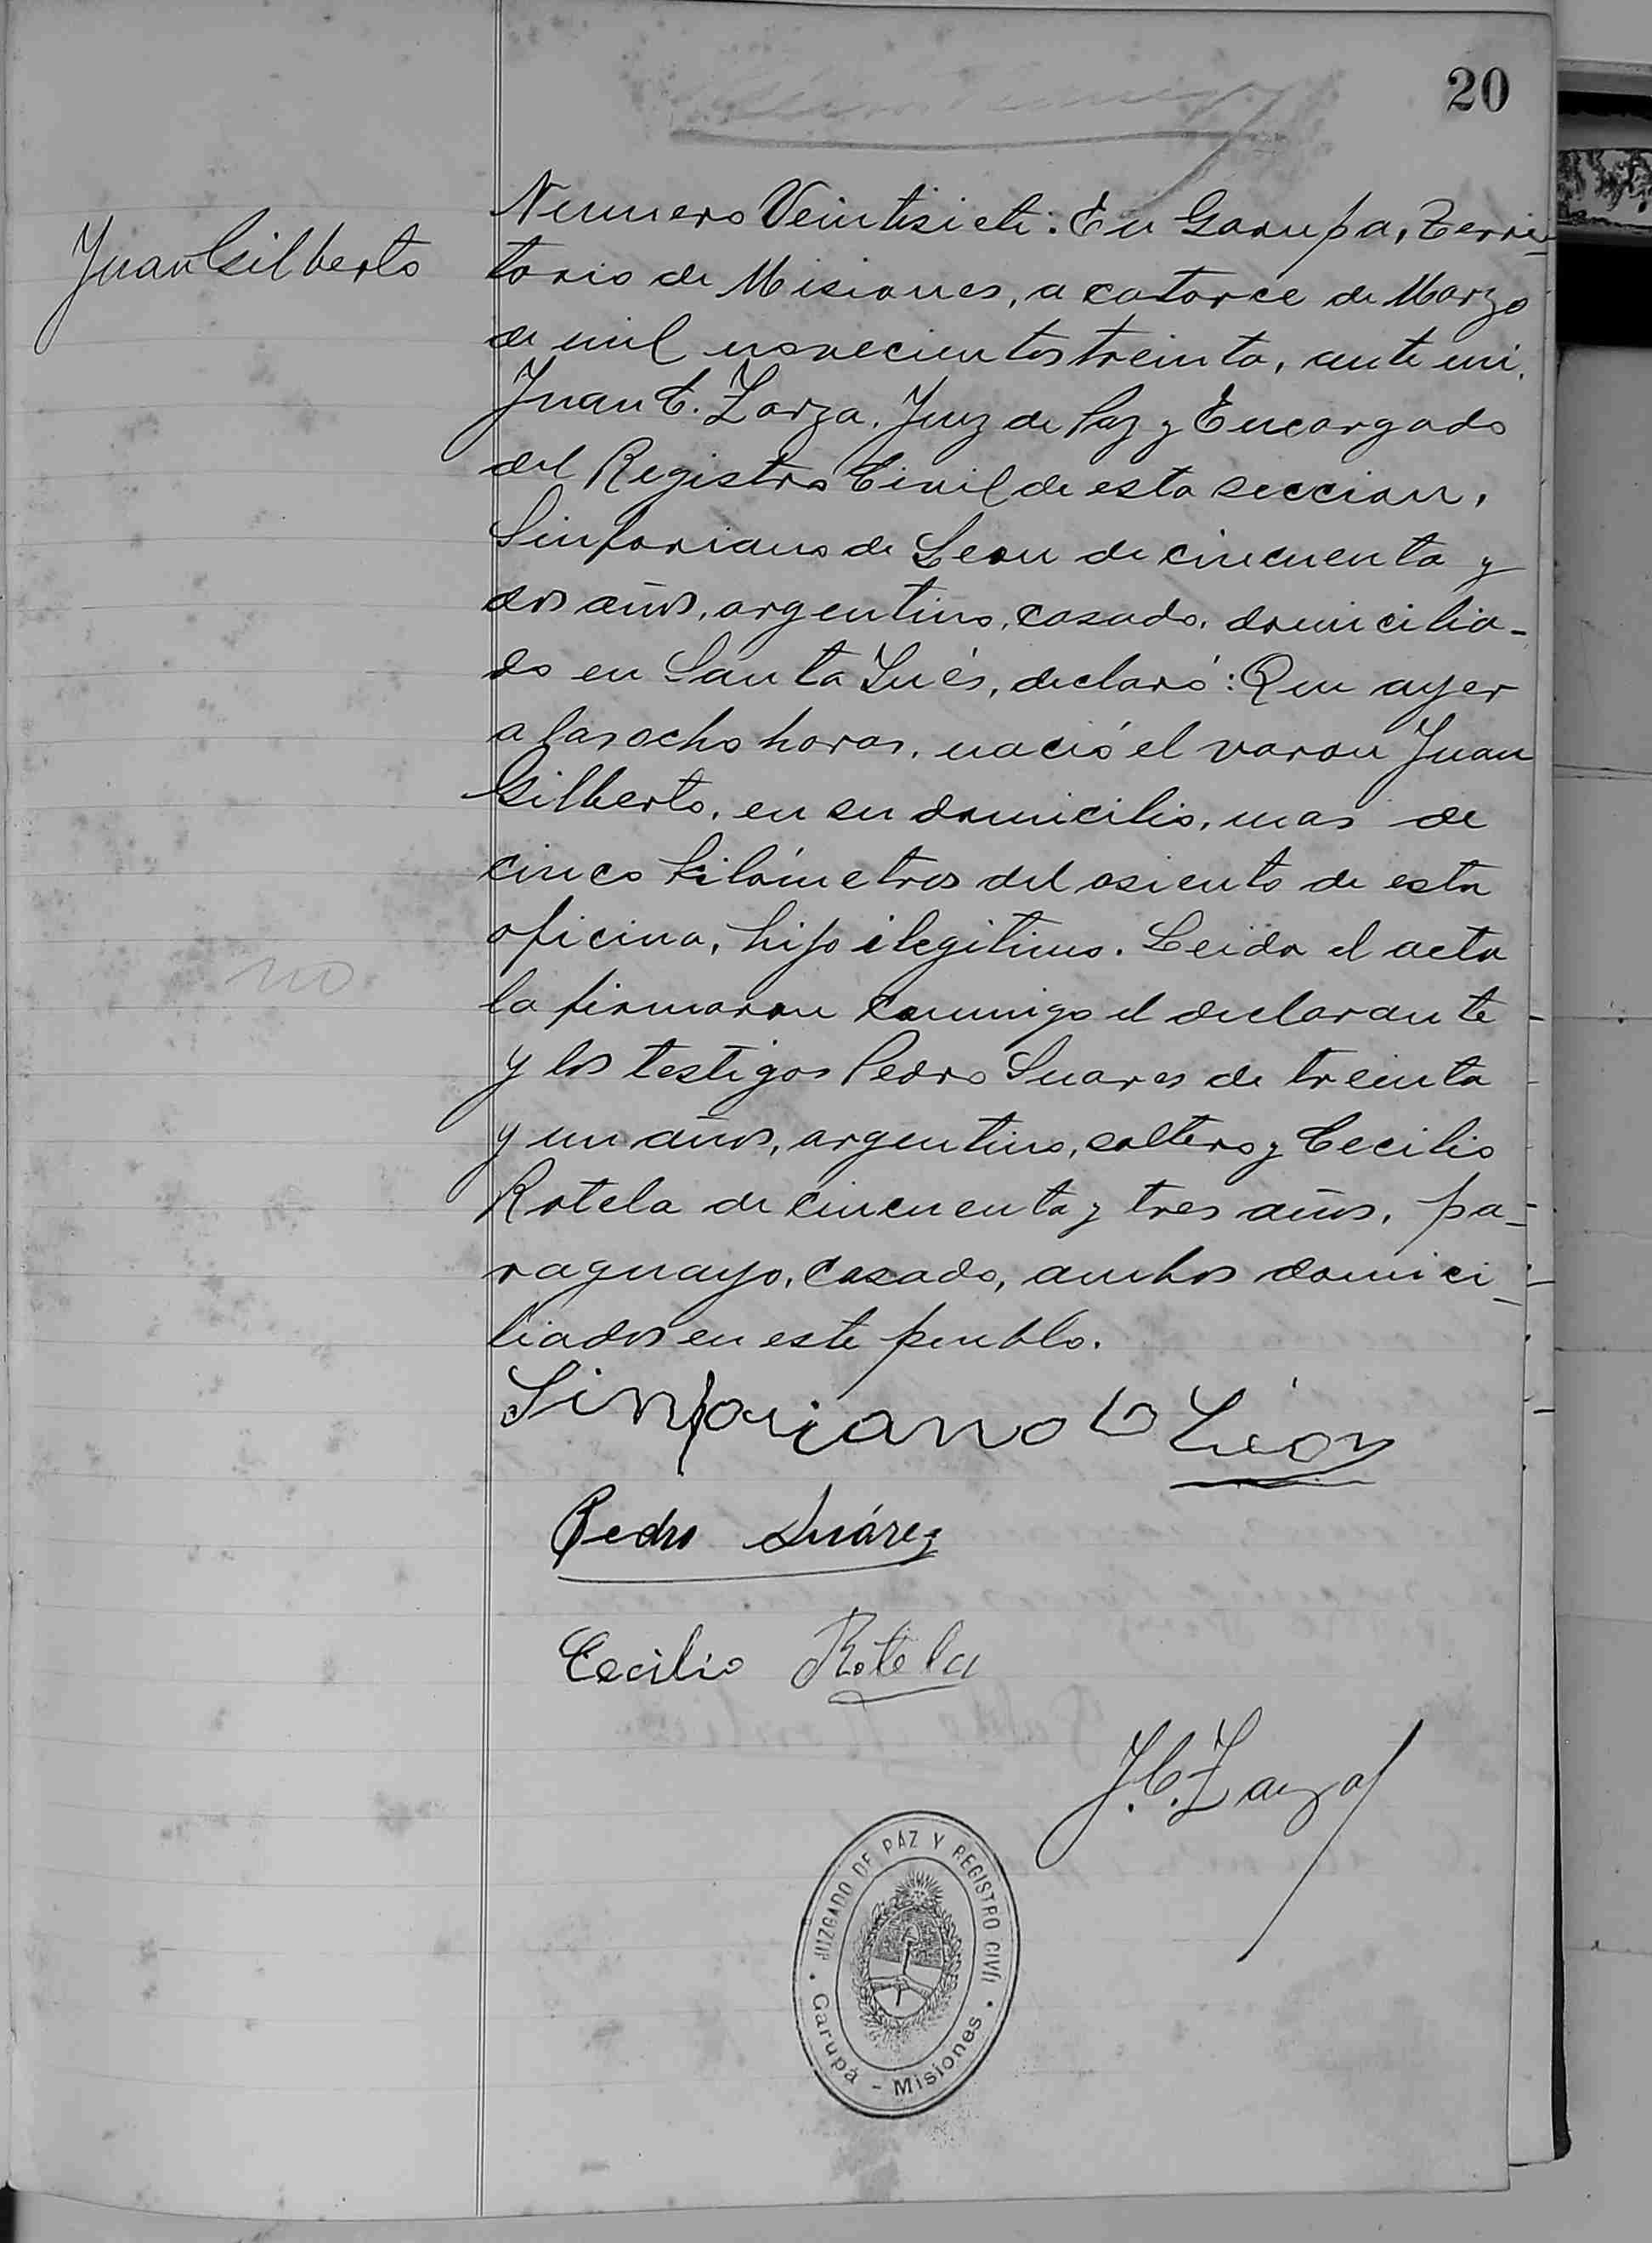 20
Juan Gilberto
Numero Veintisiete: En Garupa, Terri-
torio de Misiones, a catorce de Marzo
de mil novecientos treinta, ante mi,
Juan C. Zarza, Juez de Paz y Encargado
del Registro Civil de esta seccion,
Sinforiano de Leon de cincuenta y
dos años, argentino, casado, domicilia-
do en Santa Inés, declaró: Que ayer
a las ocho horas, nació el varon Juan
Gilberto, en su domicilio, mas de
cinco kilómetros del asiento de esta
oficina, hijo ilegitimo. Leida el acta
la firmaron conmigo el declarante
y los testigos Pedro Suares de treinta
y un años, argentino, soltero y Cecilio
Rotela de cincuenta y tres años, pa-
raguayo, casado, ambos domici-
liados en este pueblo.
no
Sinforiano D León
Pedro Suárez
Cecilio Rotela
J. C. Zarza
JUZGADO DE PAZ Y REGISTRO CIVIL
Garupá - Misiones